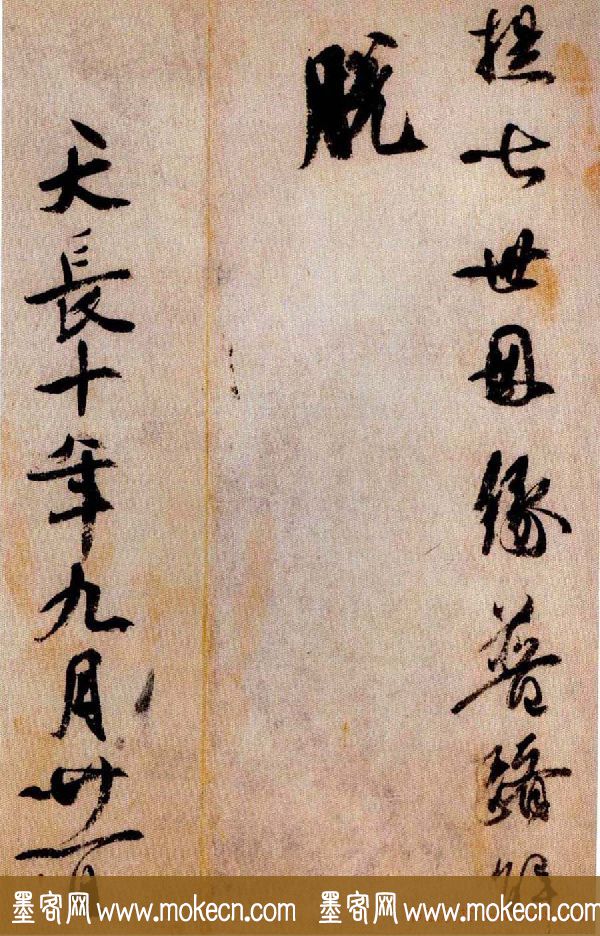 提七世因緣普躋解
脫
天長十年九月廿一日
墨客网 www.mokecn.com 墨客网 www.mokecn.com